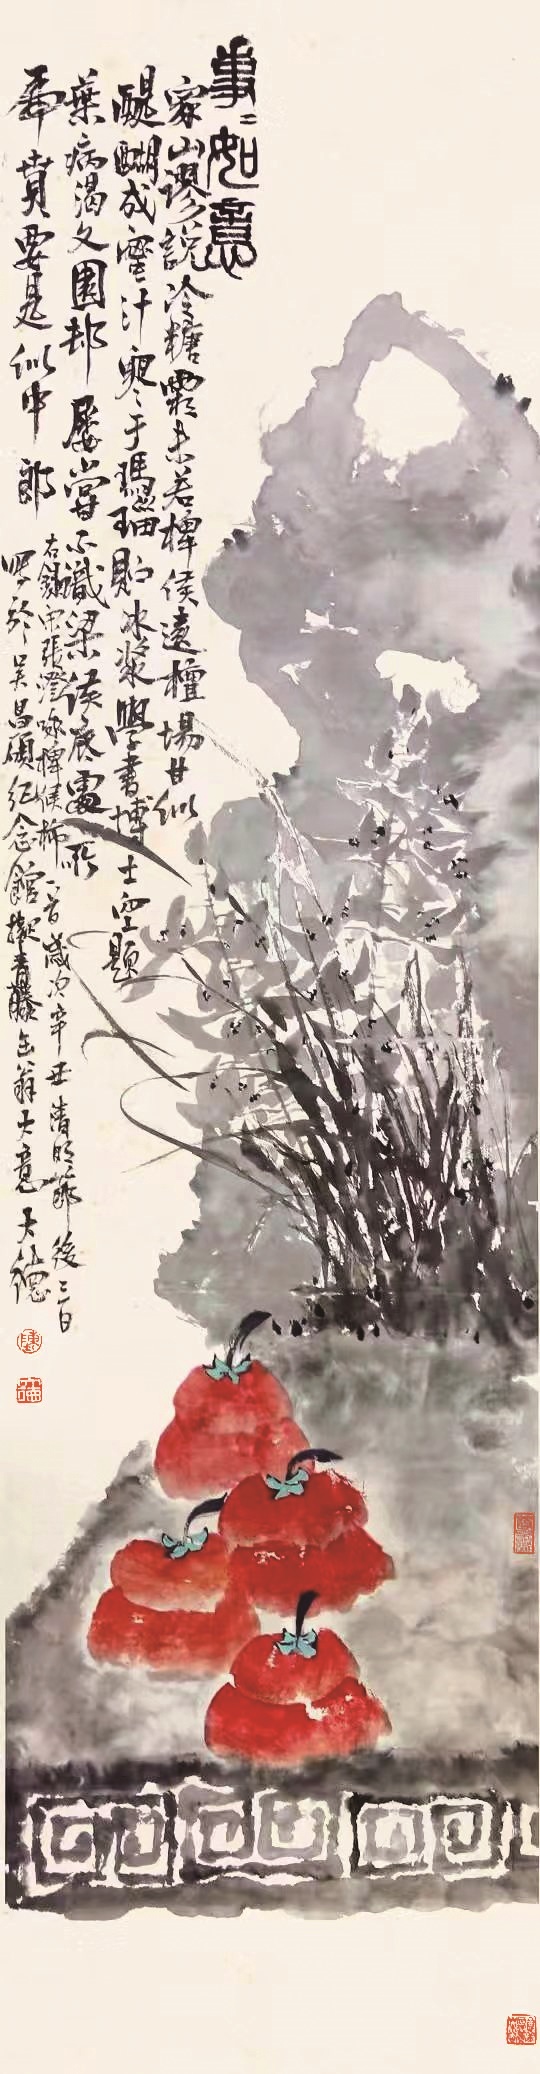 事〻如意
家山謬說冷糖霜未若椑侯遠擅場甘似
醍醐成蜜汁寒于瑪瑙貯冰漿學書博士空題
葉病渴文園却屢嘗不識梁侯底處所
虎賁要是似中郎
右錄 張澄咏椑侯柿一首歲次辛丑清明節後三日
於吳昌碩紀念館擬青藤缶翁大意 天德